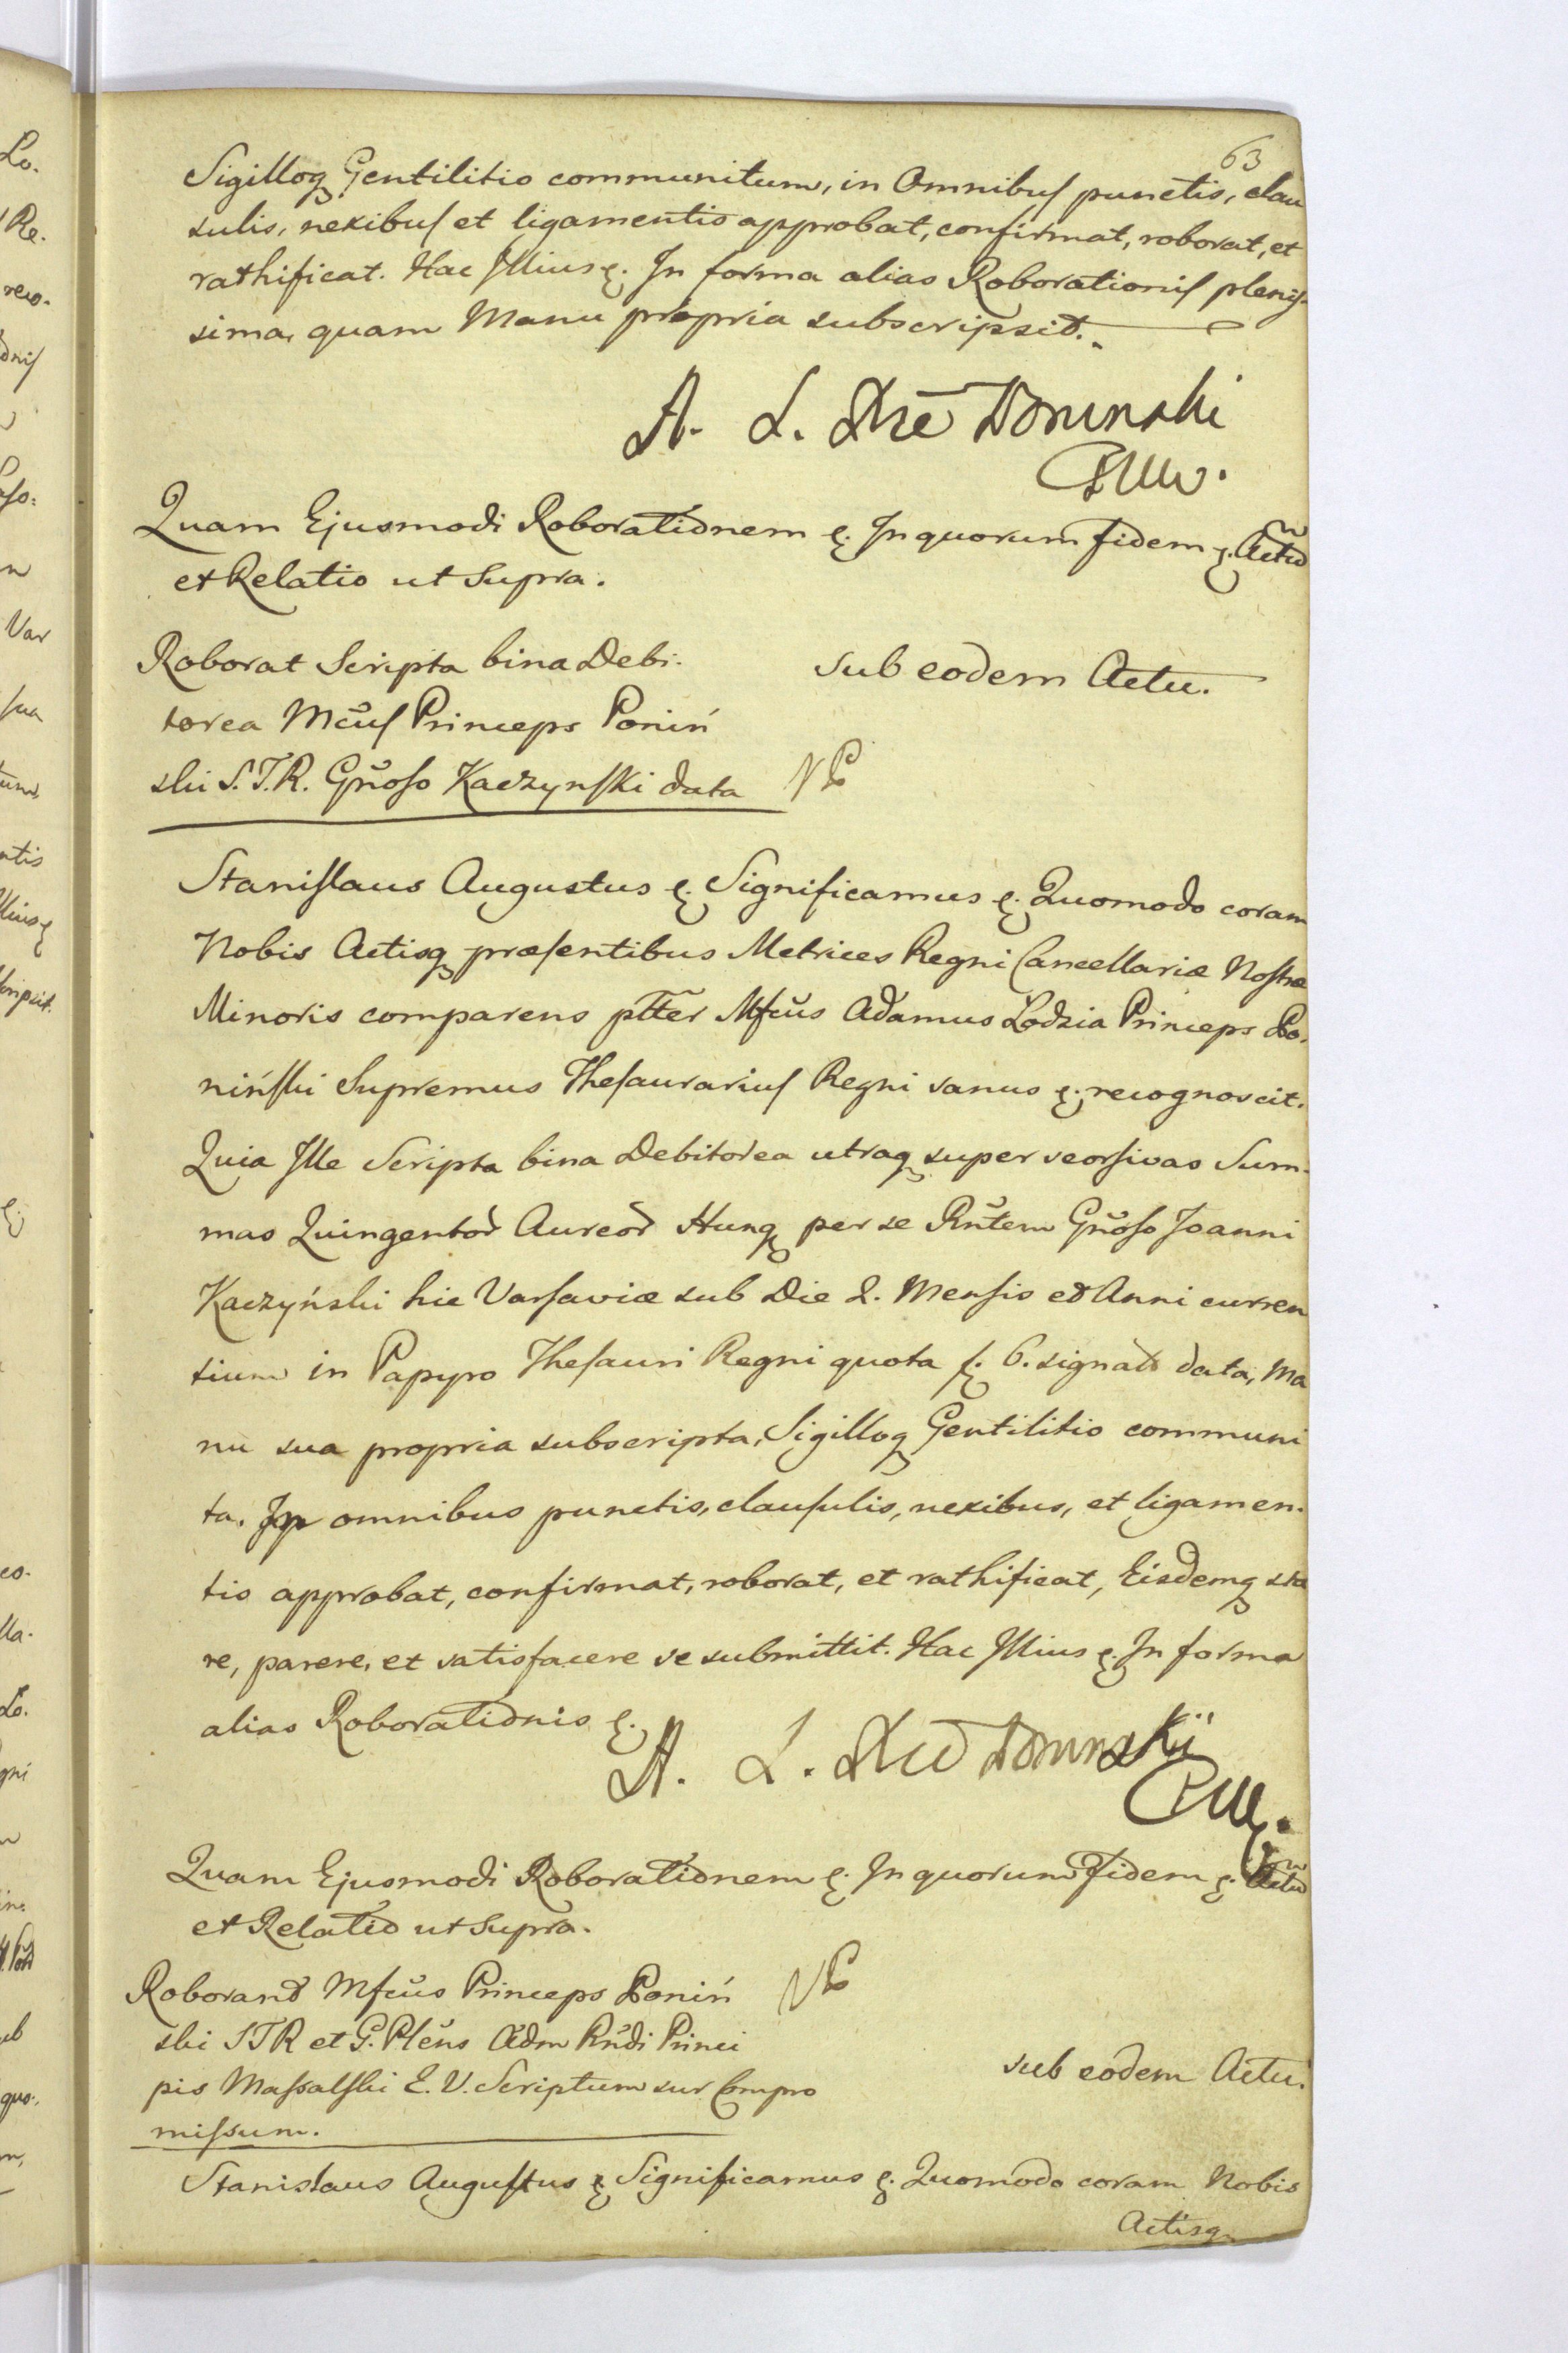 63
Sigilloq Gentilitio communitum, in Omnibus punctis, clau
sulis, nexibus et ligamentis approbat, confirmat, roborat, et
rathificat. Hac Illius &. In forma alias Roborationis plenis-
sima, quam Manu propria subscripsit.
A. L. Poninski
Quam Ejusmodi Roborationem &. In quorum fidem &. Actũ
et Relatio ut Supra.
Roborat Scripta bina Debi-
torea Mcũs Princeps Poniń
ski S.T.R. Gnõso Kaczynski data
sub eodem Actu.
Stanislaus Augustus &. Significamus &. Quomodo coram
Nobis Actisq præsentibus Metrices Regni Cancellariæ Nostræ
Minoris comparens ptter Mfcũs Adamus Lodzia Princeps Po-
niński Supremus Thesaurarius Regni sanus &. recognovit.
Quia Ille Scripta bina Debitorea utraq super seorsivas Sum-
mas Quingentor Aureor Hung per se Rñtem Gnõso Joanni
Kaczyński hic Varsaviæ sub Die 2. Mensis et Anni curren
tium in Papyro Thesauri Regni quota f. 6. signato data, Ma
nu sua propria subscripta, Sigilloq Gentilitio communi
ta. In omnibus punctis, clausulis, nexibus, et ligamen-
tis approbat, confirmat, roborat, et rathificat, Eisdemq sta
re, parere, et satisfacere se submittit. Hac Illius &. In forma
alias Roborationis &.
A. L. Poninski
Quam Ejusmodi Roborationem &. In quorum Fidem &. Actũ
et Relatio ut Supra.
Roborand Mfcũs Princeps Poniń
ski STR et G. Plẽns Adm Rñdi Princi
pis Massalski E. V. Scriptum sur Compro
missum.
sub eodem Actu.
Stanislaus Augustus &. Significamus &. Quomodo coram Nobis
Actisq